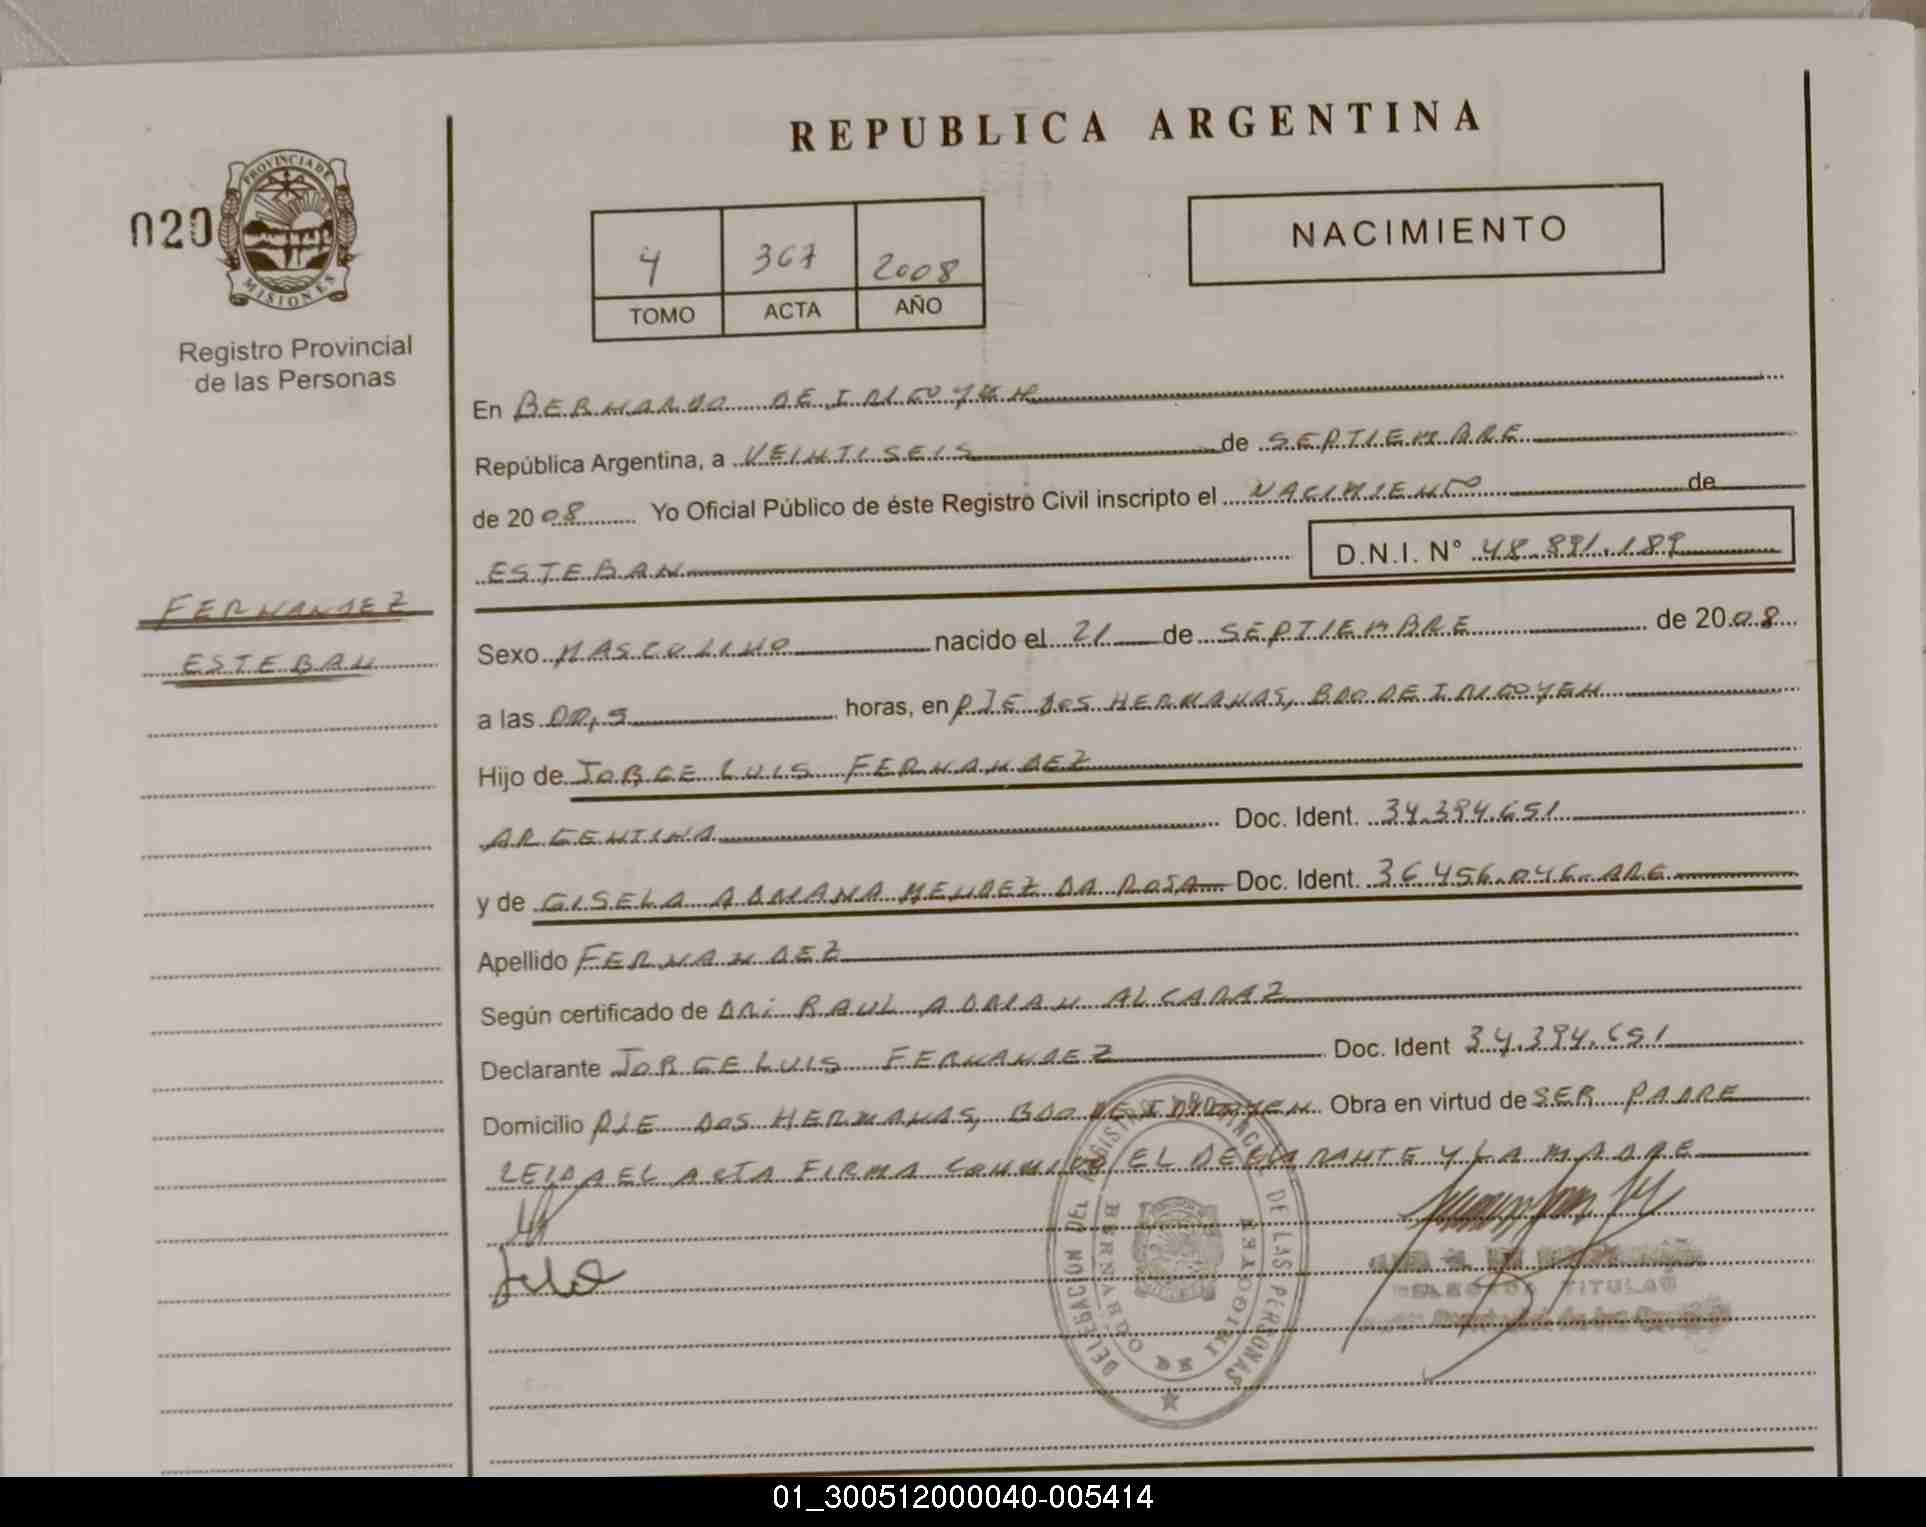 REPUBLICA ARGENTINA
020
PROVINCIA DE
MISIONES
Registro Provincial
de las Personas
4 367 2008
TOMO ACTA AÑO
NACIMIENTO
En BERNARDO DE IRIGOYEN
República Argentina, a VEINTISEIS de SEPTIEMBRE
de 2008 Yo Oficial Público de éste Registro Civil inscripto el NACIMIENTO de
ESTEBAN D.N.I. N° 48.891.189
FERNANDEZ
ESTEBAN
Sexo MASCOLINO nacido el 21 de SEPTIEMBRE de 2008
a las 00,5 horas, en PJE DOS HERMANAS, BDO DE IRIGOYEN
Hijo de JORGE LUIS FERNANDEZ
ARGENTINA Doc. Ident. 34.394.651
y de GISELA ADRIANA MENDEZ DA ROSA Doc. Ident. 36456.046-ARG
Apellido FERNANDEZ
Según certificado de DR: RAUL ADRIAN ALCARAZ
Declarante JORGE LUIS FERNANDEZ Doc. Ident 34.394.651
Domicilio PJE DOS HERMANAS, BDO DE IRIGOYEN Obra en virtud de SER PADRE
LEIDA EL ACTA FIRMA CONMIGO EL DECLARANTE Y LA MADRE
DELEGACION DEL REGISTRO PROVINCIAL DE LAS PERSONAS
BERNARDO DE IRIGOYEN
TITULAR
01_300512000040-005414